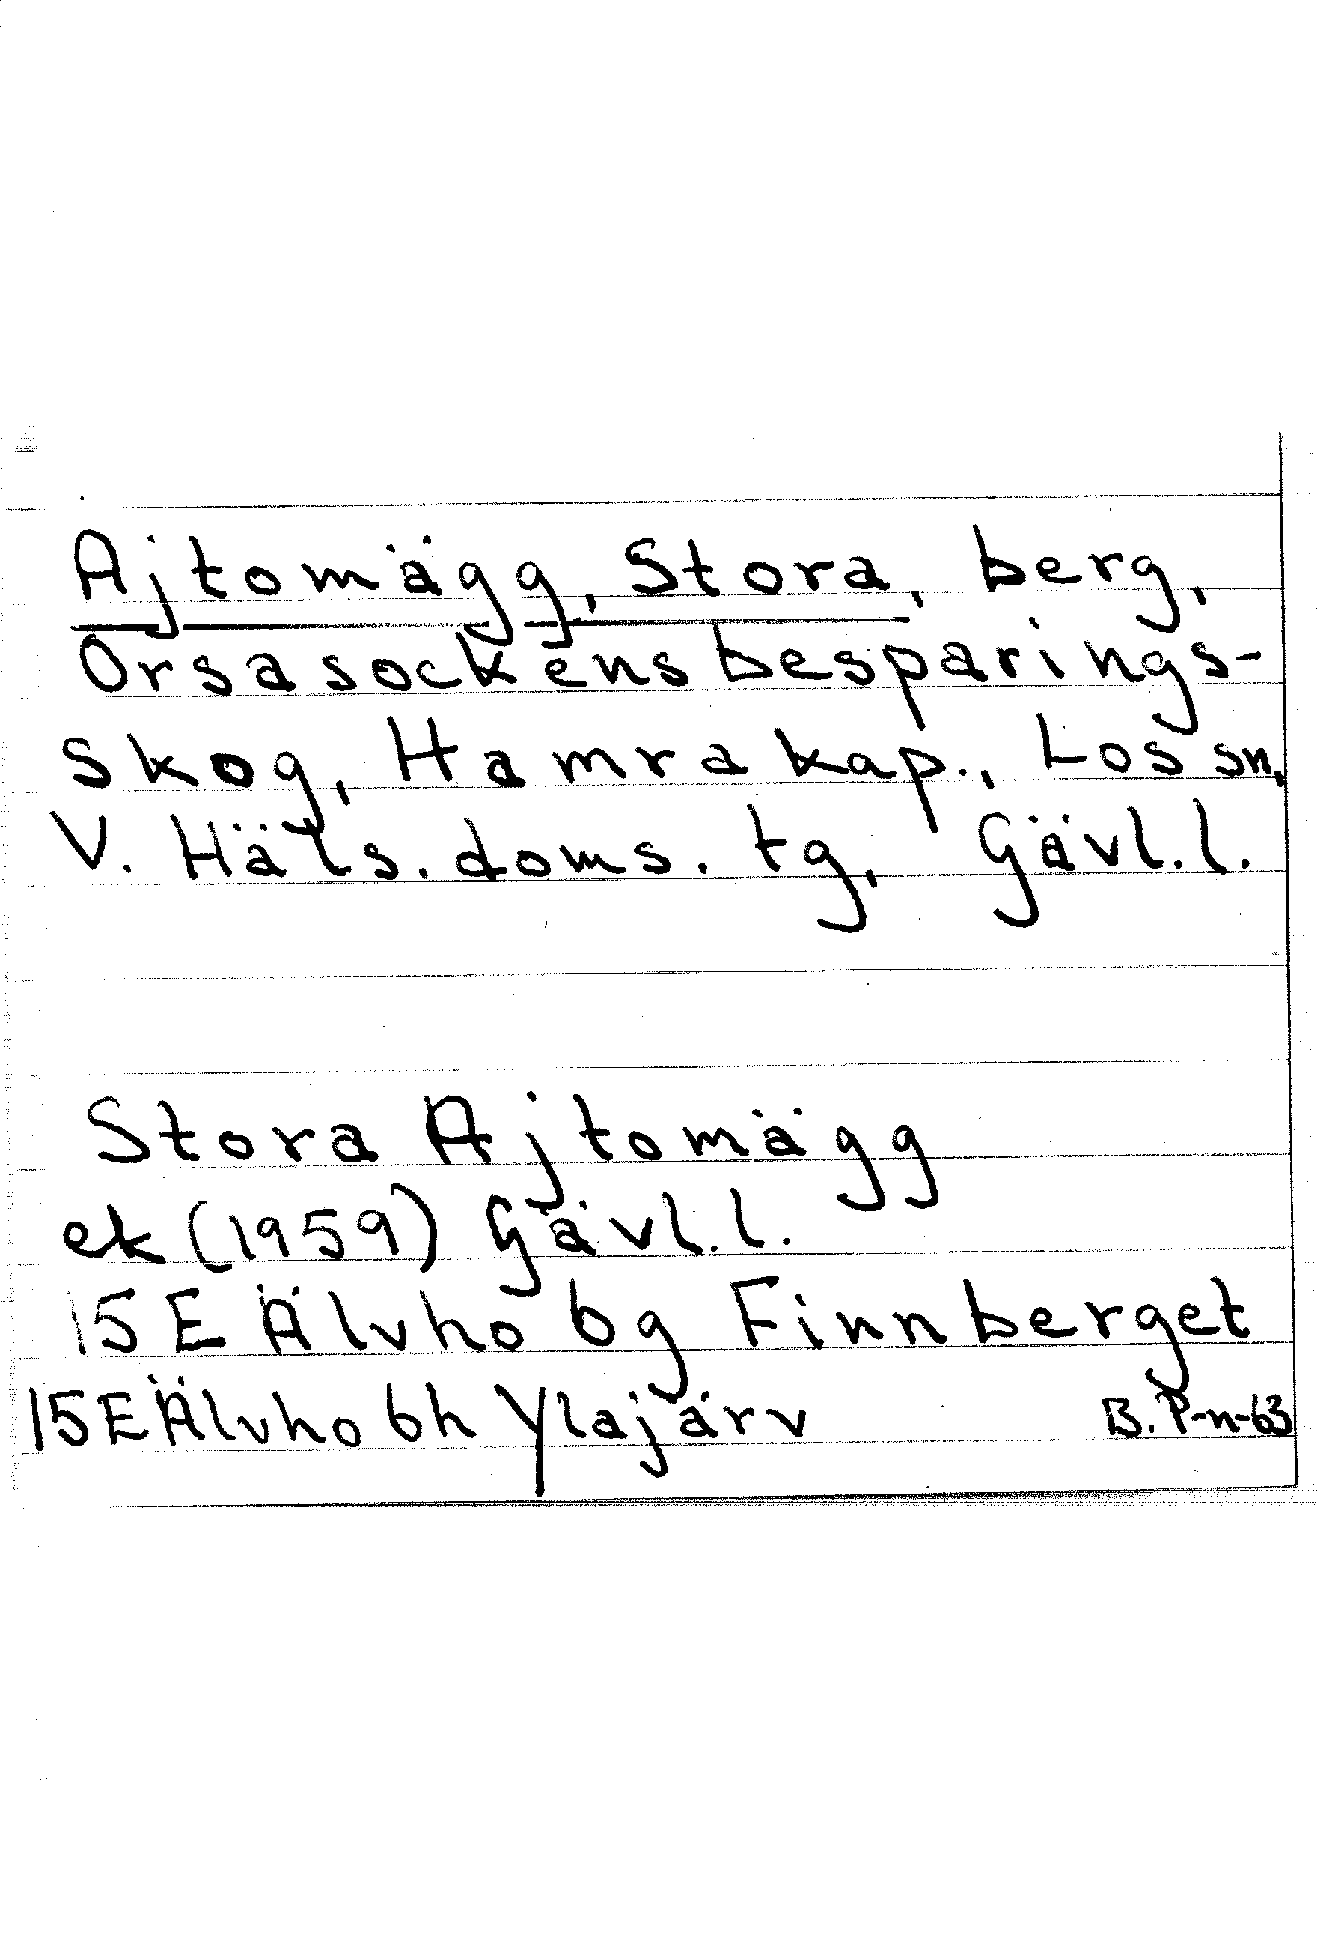 Ajtomägg, Stora, berg,
Orsa sockens besparings-
skog, Hamra kap., Los sn,
V. Häls. doms. tg, Gävl. l.
Stora Ajtomägg
ek (1959) Gävl. l.
15E Älvho 6g Finnberget
15E Älvho 6h Ylajärv
B. P-n-63